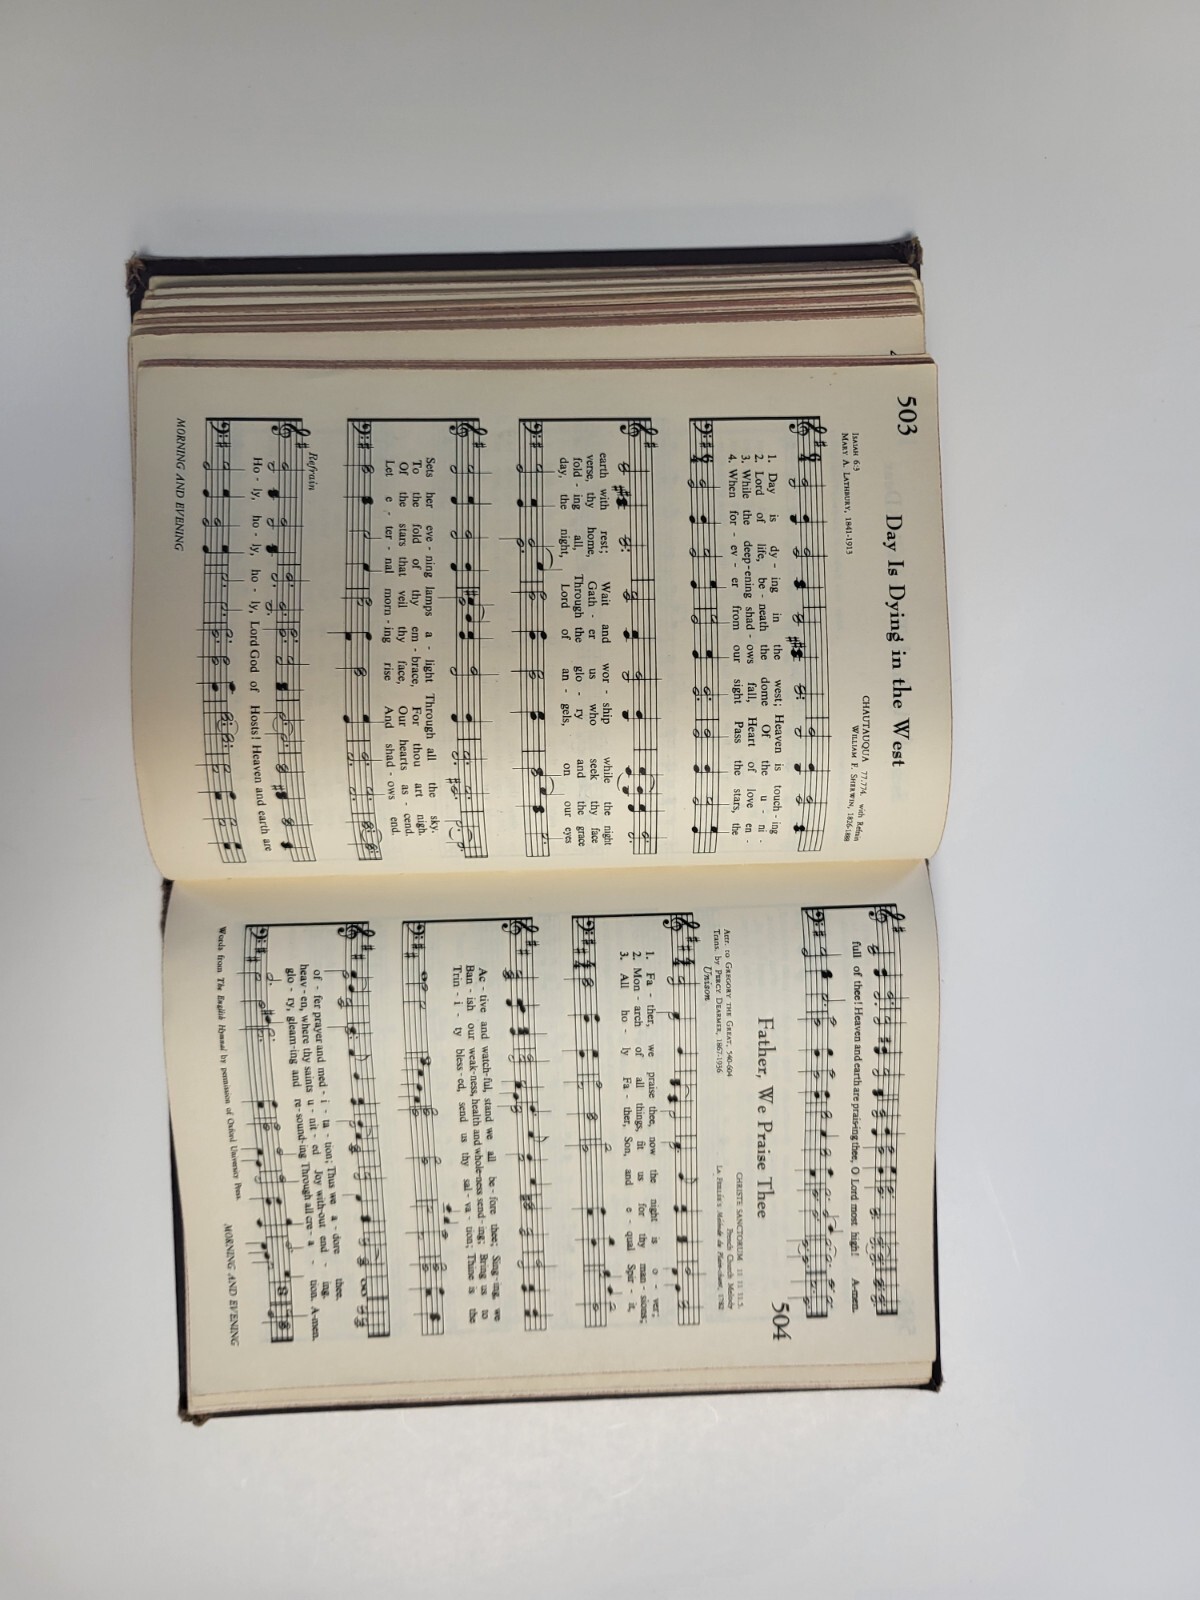 503
Day Is Dying in the West
ISAIAH 6:3
MARY A. LATHBURY, 1841-1913
CHAUTAUQUA 77.774. with Refrain
WILLIAM F. SHERWIN, 1826-1888
1. Day is dy - ing in the west; Heaven is touch - ing
2. Lord of life, be - neath the dome Of the u - ni -
3. While the deep - ening shad - ows fall, Heart of love en -
4. When for - ev - er from our sight Pass the stars, the
earth with rest; Wait and wor - ship while the night
verse, thy home, Gath - er us who seek thy face
fold - ing all, Through the glo - ry and the grace
day, the night, Lord of an - gels, on our eyes
Sets her eve - ning lamps a - light Through all the sky.
To the fold of thy em - brace, For thou art nigh.
Of the stars that veil thy face, Our hearts as - cend.
Let e - ter - nal morn - ing rise And shad - ows end.
Refrain
Ho - ly, ho - ly, ho - ly, Lord God of Hosts! Heaven and earth are
MORNING AND EVENING
full of thee! Heaven and earth are prais-ing thee, O Lord most high! A-men.
Father, We Praise Thee
504
Attr. to GREGORY THE GREAT, 540-604
Trans. by PERCY DEARMER, 1867-1936
CHRISTE SANCTORUM 11 11 11.5.
French Church Melody
La Feillée's Méthode du Plain-chant, 1782
Unison
1. Fa - ther, we praise thee, now the night is o - ver;
2. Mon - arch of all things, fit us for thy man - sions;
3. All ho - ly Fa - ther, Son, and e - qual Spir - it,
Ac - tive and watch-ful, stand we all be - fore thee; Sing - ing, we
Ban - ish our weak-ness, health and whole-ness send - ing; Bring us to
Trin - i - ty bless - ed, send us thy sal - va - tion; Thine is the
of - fer prayer and med - i - ta - tion; Thus we a - dore thee.
heav - en, where thy saints u - nit - ed Joy with-out end - ing.
glo - ry, gleam-ing and re-sound-ing Through all cre - a - tion. A-men.
Words from The English Hymnal by permission of Oxford University Press.
MORNING AND EVENING